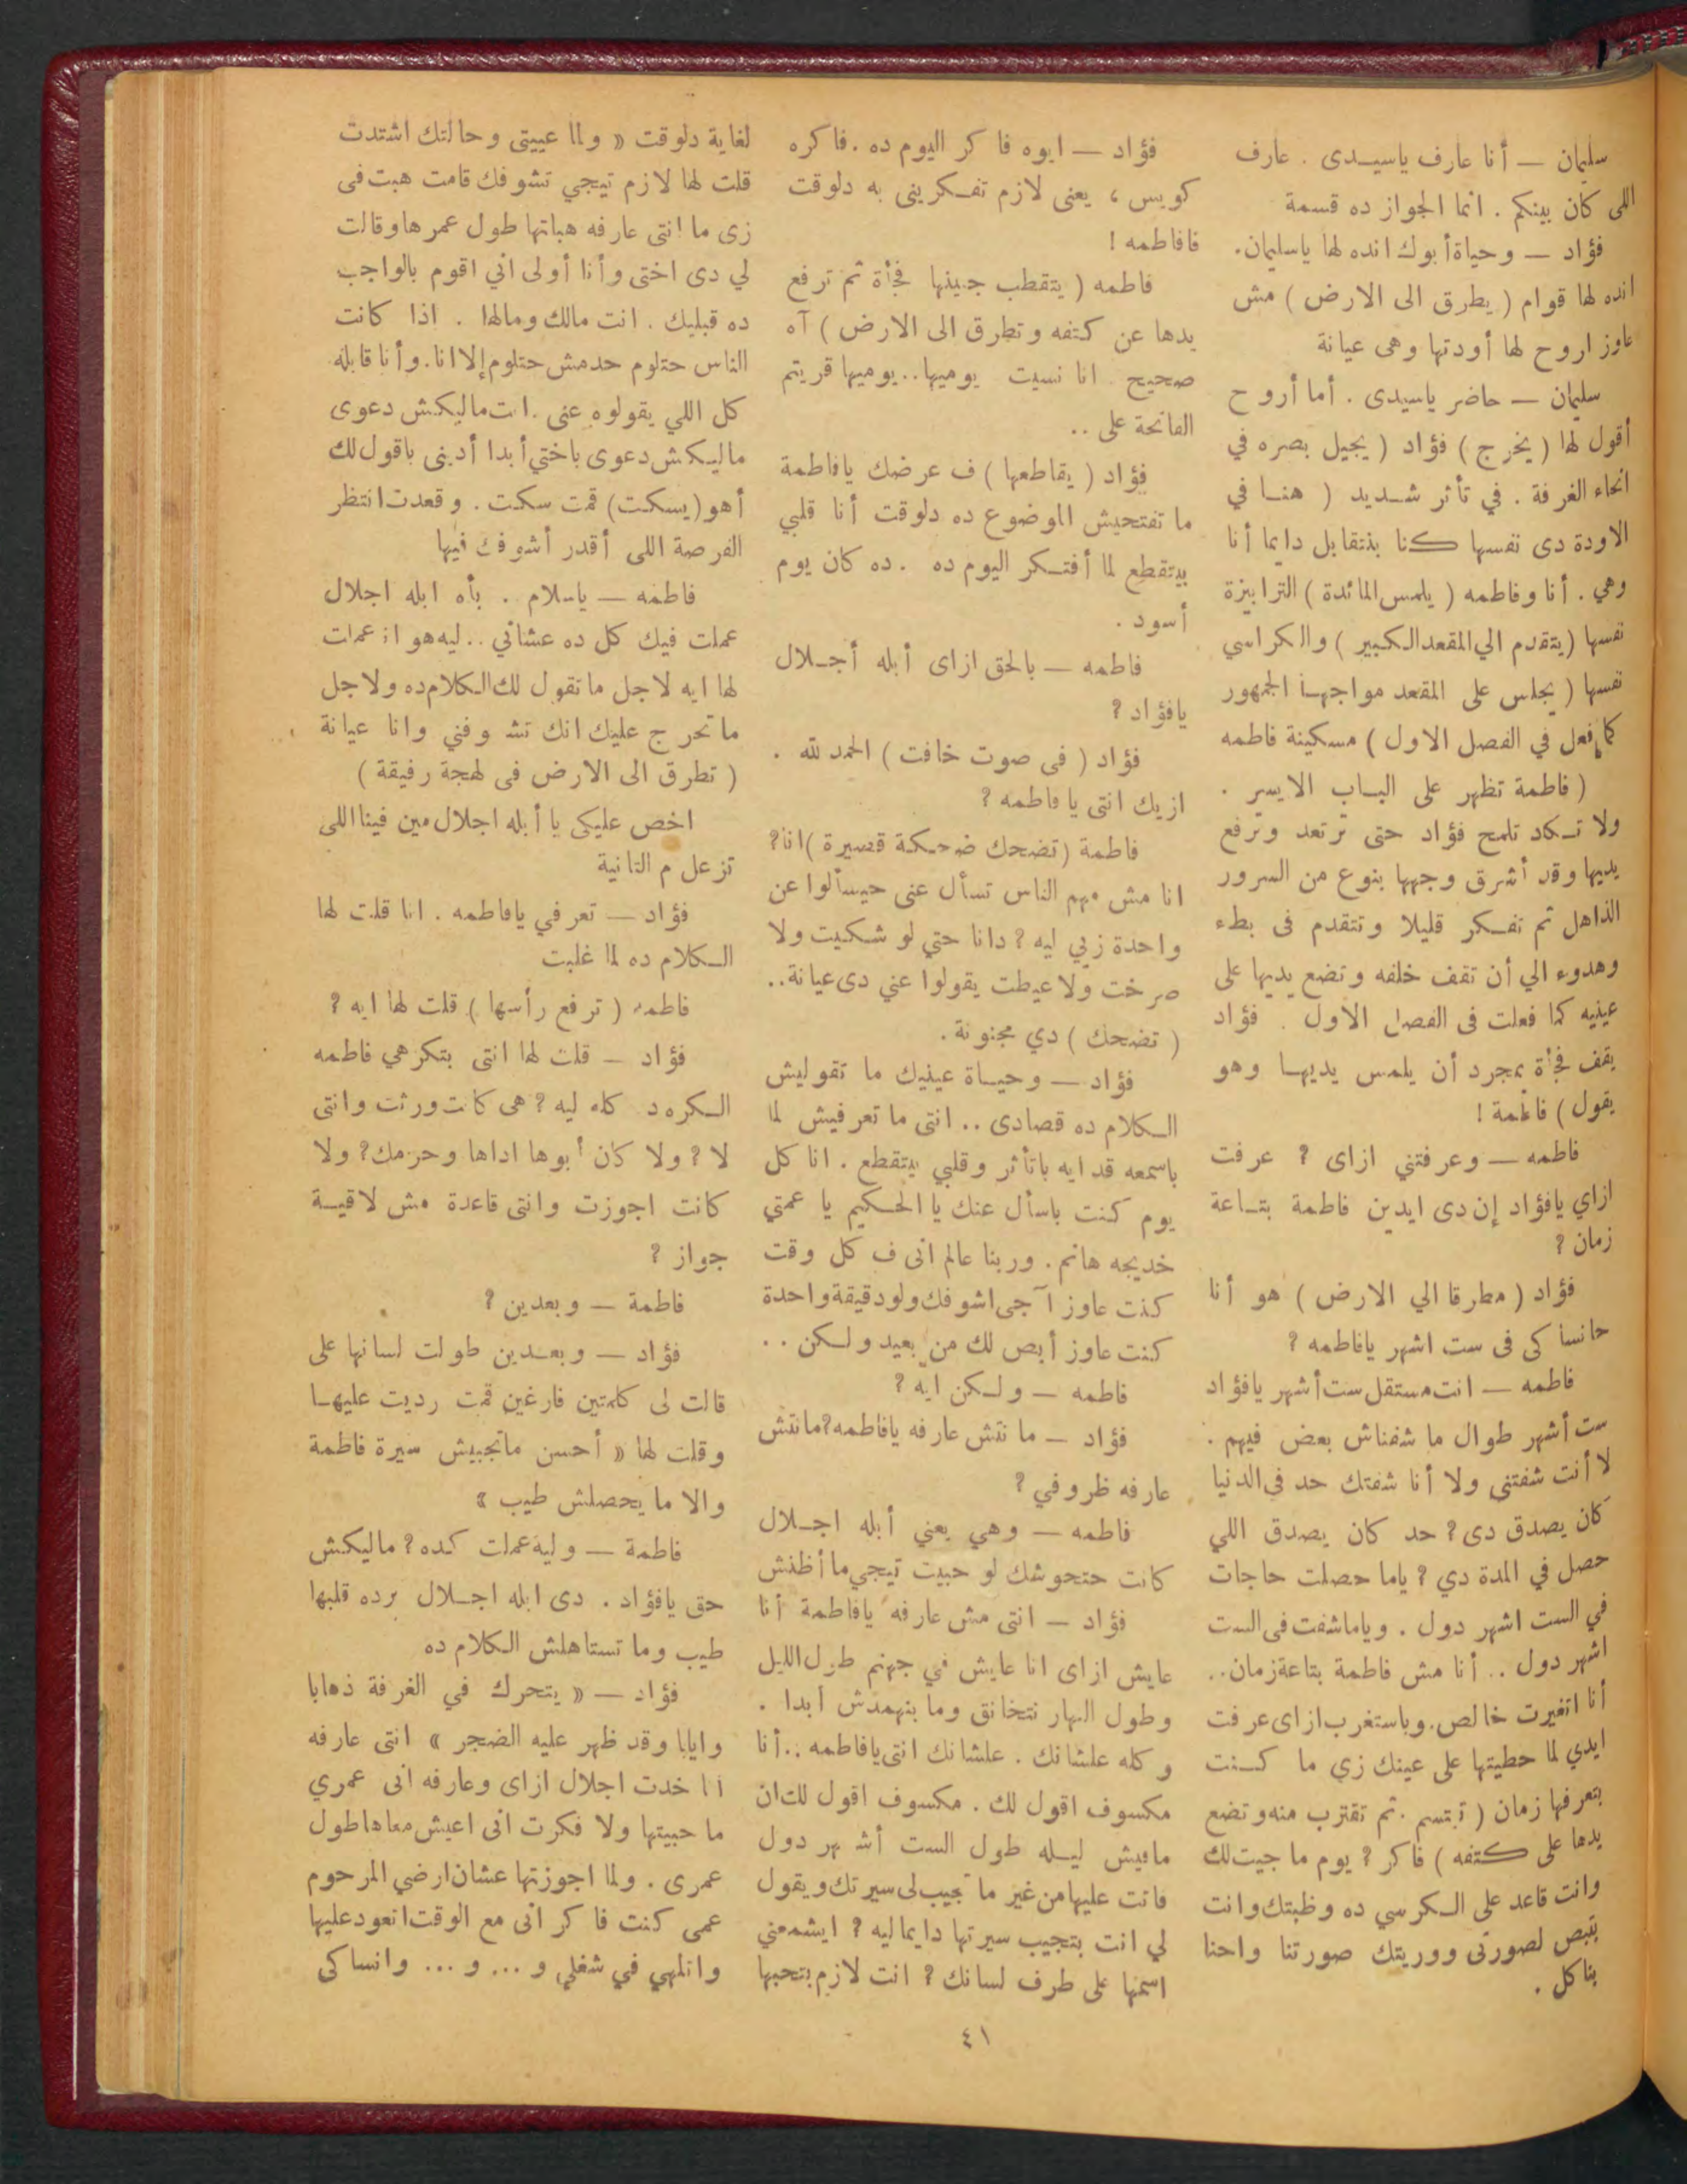 سليمان — أنا عارف ياسيدى . عارف
اللى كان بينكم . انما الجواز ده قسمة
فؤاد — وحياة أبوك انده لها ياسليمان.
انده لها قوام ( يطرق الى الارض ) مش
عاوز اروح لها أودتها وهى عيانة
سليمان — حاضر ياسيدى . أما أروح
أقول لها ( يخرج ) فؤاد ( يجيل بصره في
انحاء الغرفة . في تأثر شديد ( هنا في
الاودة دى نفسها كنا بنتقابل دايما أنا
وهي . أنا وفاطمه ( يلمس المائدة ) الترابيزة
نفسها ( يتقدم الي المقعد الكبير ) والكراسي
نفسها ( يجلس على المقعد مواجها الجمهور
كما فعل في الفصل الاول ) مسكينة فاطمه
( فاطمة تظهر على الباب الايسر .
ولا تكاد تلمح فؤاد حتى ترتعد وترفع
يديها وقد أشرق وجهها بنوع من السرور
الذاهل ثم تفكر قليلا وتتقدم فى بطء
وهدوء الي أن تقف خلفه وتضع يديها على
عينيه كما فعلت فى الفصل الاول . فؤاد
يقف فجأة بمجرد أن يلمس يديها وهو
يقول ) فاطمة !
فاطمه — وعرفتني ازاى ؟ عرفت
ازاي يافؤاد إن دى ايدين فاطمة بتاعة
زمان ؟
فؤاد ( مطرقا الي الارض ) هو أنا
حانساكى فى ست اشهر يافاطمه ؟
فاطمه — انت مستقل ست أشهر يافؤاد
ست أشهر طوال ما شفناش بعض فيهم .
لا أنت شفتني ولا أنا شفتك حد فى الدنيا
كان يصدق دى ؟ حد كان يصدق اللي
حصل في المدة دي ؟ ياما حصلت حاجات
في الست اشهر دول . وياما شفت فى الست
اشهر دول .. أنا مش فاطمة بتاعة زمان..
أنا اتغيرت خالص. وباستغرب ازاى عرفت
ايدي لما حطيتها على عينك زي ما كنت
بتعرفها زمان ( تبتسم . ثم تقترب منه وتضع
يدها على كتفه ) فاكر ؟ يوم ما جيت لك
وانت قاعد على الكرسي ده وظبتك وانت
بتبص لصورتى ووريتك صورتنا واحنا
بناكل .
فؤاد — ايوه فاكر اليوم ده . فاكره
كويس ، يعنى لازم تفكرينى به دلوقت
فافاطمه !
فاطمه ( يتقطب جبينها فجأة ثم ترفع
يدها عن كتفه وتطرق الى الارض ) آه
صحيح . انا نسيت يوميها.. يوميها قريتم
الفاتحة على ..
فؤاد ( يقاطعها ) ف عرضك يافاطمة
ما تفتحيش الموضوع ده دلوقت أنا قلبي
بيتقطع لما أفتكر اليوم ده . ده كان يوم
أسود .
فاطمه — بالحق ازاى أبله أجلال
يافؤاد ؟
فؤاد ( فى صوت خافت ) الحمد لله .
ازيك انتى يا فاطمه ؟
فاطمة ( تضحك ضحكة قصيرة ) انا؟
انا مش مهم الناس تسأل عنى حيسألوا عن
واحدة زيي ليه ؟ دانا حتي لو شكيت ولا
صرخت ولا عيطت يقولوا عني دى عيانة..
( تضحك ) دي مجنونة .
فؤاد — وحياة عينيك ما تقوليش
الكلام ده قصادى .. انتى ما تعرفيش لما
باسمعه قد ايه باتأثر وقلبي بيتقطع . انا كل
يوم كنت باسأل عنك يا الحكيم يا عمتي
خديجه هانم . وربنا عالم انى ف كل وقت
كنت عاوز آجى اشوفك ولو دقيقة واحدة
كنت عاوز أبص لك من بعيد ولكن ..
فاطمه — ولكن ايه ؟
فؤاد — ما نتش عارفه يافاطمه؟ ما نتش
عارفه ظروفي ؟
فاطمه — وهي يعني أبله اجلال
كانت حتحوشك لو حبيت تيجي ما أظنش
فؤاد — انتى مش عارفه يافاطمة أنا
عايش ازاى انا عايش في جهنم طول الليل
وطول النهار نتخانق وما بنهمدش ابدا .
وكله علشانك . علشانك انتى يافاطمه .. أنا
مكسوف اقول لك . مكسوف اقول لك ان
مافيش ليله طول الست أشهر دول
فاتت عليها من غير ما تجيب لى سيرتك ويقول
لي انت بتجيب سيرتها دايما ليه ؟ ايشمعني
اسمها على طرف لسانك ؟ انت لازم بتحبها
لغاية دلوقت « ولما عييتى وحالتك اشتدت
قلت لها لازم تيجي تشوفك قامت هبت فى
زى ما انتى عارفه هباتها طول عمرها وقالت
لي دى اختى وأنا أولى اني اقوم بالواجب
ده قبليك . انت مالك ومالها . اذا كانت
الناس حتلوم حدمش حتلوم إلا انا. وأنا قابله
كل اللي يقولوه عنى . انت ماليكش دعوى
ماليكش دعوى باختي أبدا أدينى باقول لك
أهو ( يسكت ) قمت سكت . وقعدت انتظر
الفرصة اللى أقدر أشوفك فيها
فاطمه — ياسلام . بأه ابله اجلال
عملت فيك كل ده عشاني .. ليه هو انا عملت
لها ايه لاجل ما تقول لك الكلام ده ولاجل
ما تحرج عليك انك تشوفني وانا عيانة
( تطرق الى الارض فى لهجة رفيقة )
اخص عليكى يا أبله اجلال مين فينا اللى
تزعل م التانية
فؤاد — تعرفي يافاطمه . انا قلت لها
الكلام ده لما غلبت
فاطمه ( ترفع رأسها ) قلت لها ايه ؟
فؤاد — قلت لها انتى بتكرهي فاطمه
الكره د كله ليه ؟ هى كانت ورثت وانتى
لا ؟ ولا كان أبوها اداها وحرمك؟ ولا
كانت اجوزت وانتى قاعدة مش لاقية
جواز ؟
فاطمة — وبعدين ؟
فؤاد — وبعدين طولت لسانها على
قالت لى كلمتين فارغين قمت رديت عليها
وقلت لها « أحسن ماتجيبيش سيرة فاطمة
والا ما يحصلش طيب »
فاطمة — وليه عملت كده ؟ ماليكش
حق يافؤاد . دى ابله اجلال برده قلبها
طيب وما تستاهلش الكلام ده
فؤاد — « يتحرك في الغرفة ذهابا
وايابا وقد ظهر عليه الضجر » انتى عارفه
انا خدت اجلال ازاى وعارفه انى عمري
ما حبيتها ولا فكرت انى اعيش معاها طول
عمرى . ولما اجوزتها عشان ارضي المرحوم
عمى كنت فاكر انى مع الوقت اتعود عليها
واتلهي في شغلي و ... و ... وانساكى
٤١